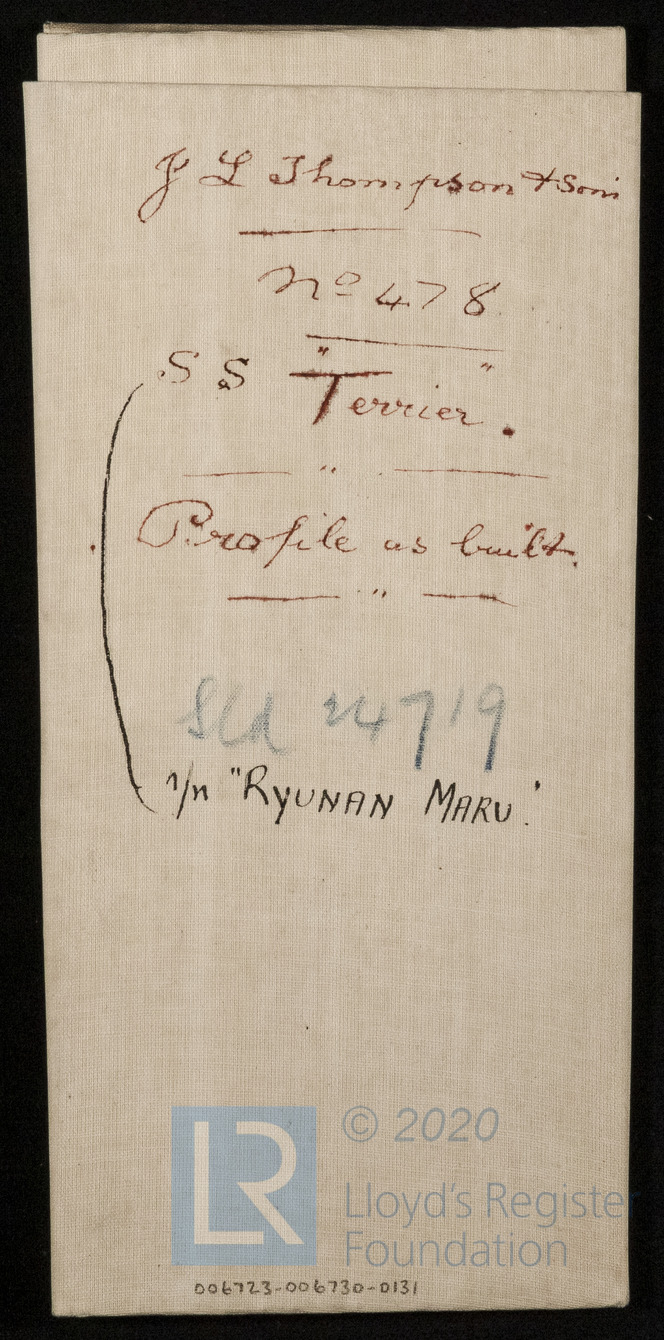 J L Thompson & Sons
No 478
S S "Terrier".
"
Profile as built.
"
Sld 24719
n/n "RYUNAN MARU".
© 2020
LR
Lloyd's Register
Foundation
006723-006730-0131